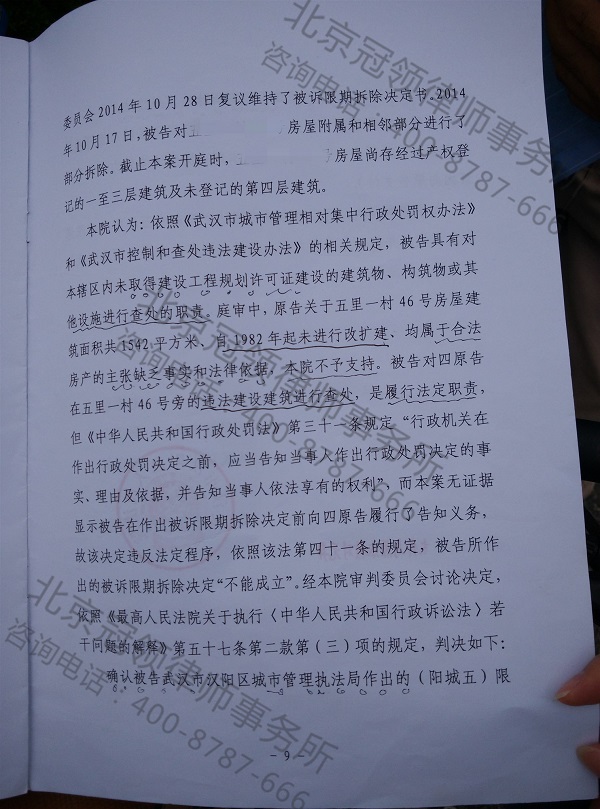 委员会2014年10月28日复议维持了被诉限期拆除决定书。2014
年10月17日,被告对 房屋附属和相邻部分进行了
部分拆除。截止本案开庭时, 房屋尚存经过产权登
记的一至三层建筑及未登记的第四层建筑。
本院认为:依照《武汉市城市管理相对集中行政处罚权办法》
和《武汉市控制和查处违法建设办法》的相关规定,被告具有对
本辖区内未取得建设工程规划许可证建设的建筑物、构筑物或其
他设施进行查处的职责。庭审中,原告关于五里一村46号房屋建
筑面积共1542平方米、自1982年起未进行改扩建、均属于合法
房产的主张缺乏事实和法律依据,本院不予支持。被告对四原告
在五里一村46号旁的违法建设建筑进行查处,是履行法定职责,
但《中华人民共和国行政处罚法》第三十一条规定“行政机关在
作出行政处罚决定之前,应当告知当事人作出行政处罚决定的事
实、理由及依据,并告知当事人依法享有的权利”,而本案无证据
显示被告在作出被诉限期拆除决定前向四原告履行了告知义务,
故该决定违反法定程序,依照该法第四十一条的规定,被告所作
出的被诉限期拆除决定“不能成立”。经本院审判委员会讨论决定,
依照《最高人民法院关于执行〈中华人民共和国行政诉讼法〉若
干问题的解释》第五十七条第二款第(三)项的规定,判决如下:
确认被告武汉市汉阳区城市管理执法局作出的(阳城五)限
- 9 -
北京冠领律师事务所
咨询电话:400-8787-666
北京冠领律师事务所
咨询电话:400-8787-666
北京冠领律师事务所
咨询电话:400-8787-666